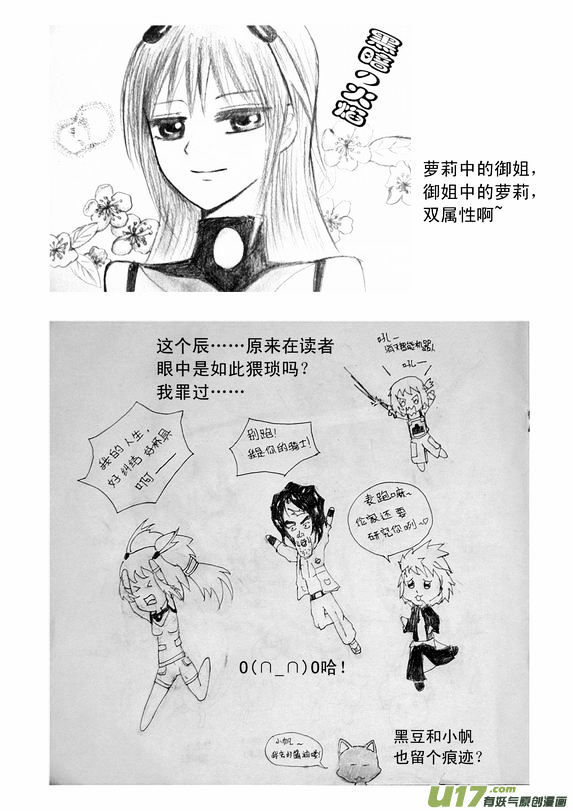 黑暗の火焰
萝莉中的御姐，
御姐中的萝莉，
双属性啊~
这个辰……原来在读者
眼中是如此猥琐吗？
我罪过……
吼～
吼～
我的人生，
好纠结 好杯具
啊——
别跑！
我是你的骑士！
表跑嘛～
伦家还要
研究你咧～♡
O(∩_∩)O哈！
小帆～
黑豆和小帆
也留个痕迹？
U17.com
有妖气原创漫画